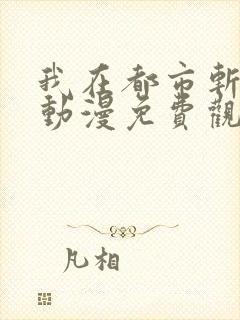 我在都市斬
動漫免費觀
凡相